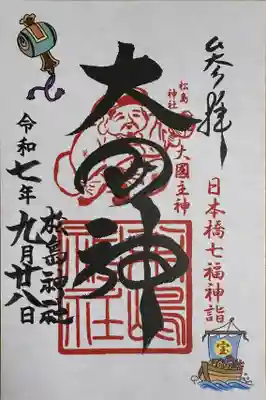 参拝
日本橋七福神詣
松島神社
大國主神
大国神
松島神社
令和七年九月廿八日
松島神社
宝